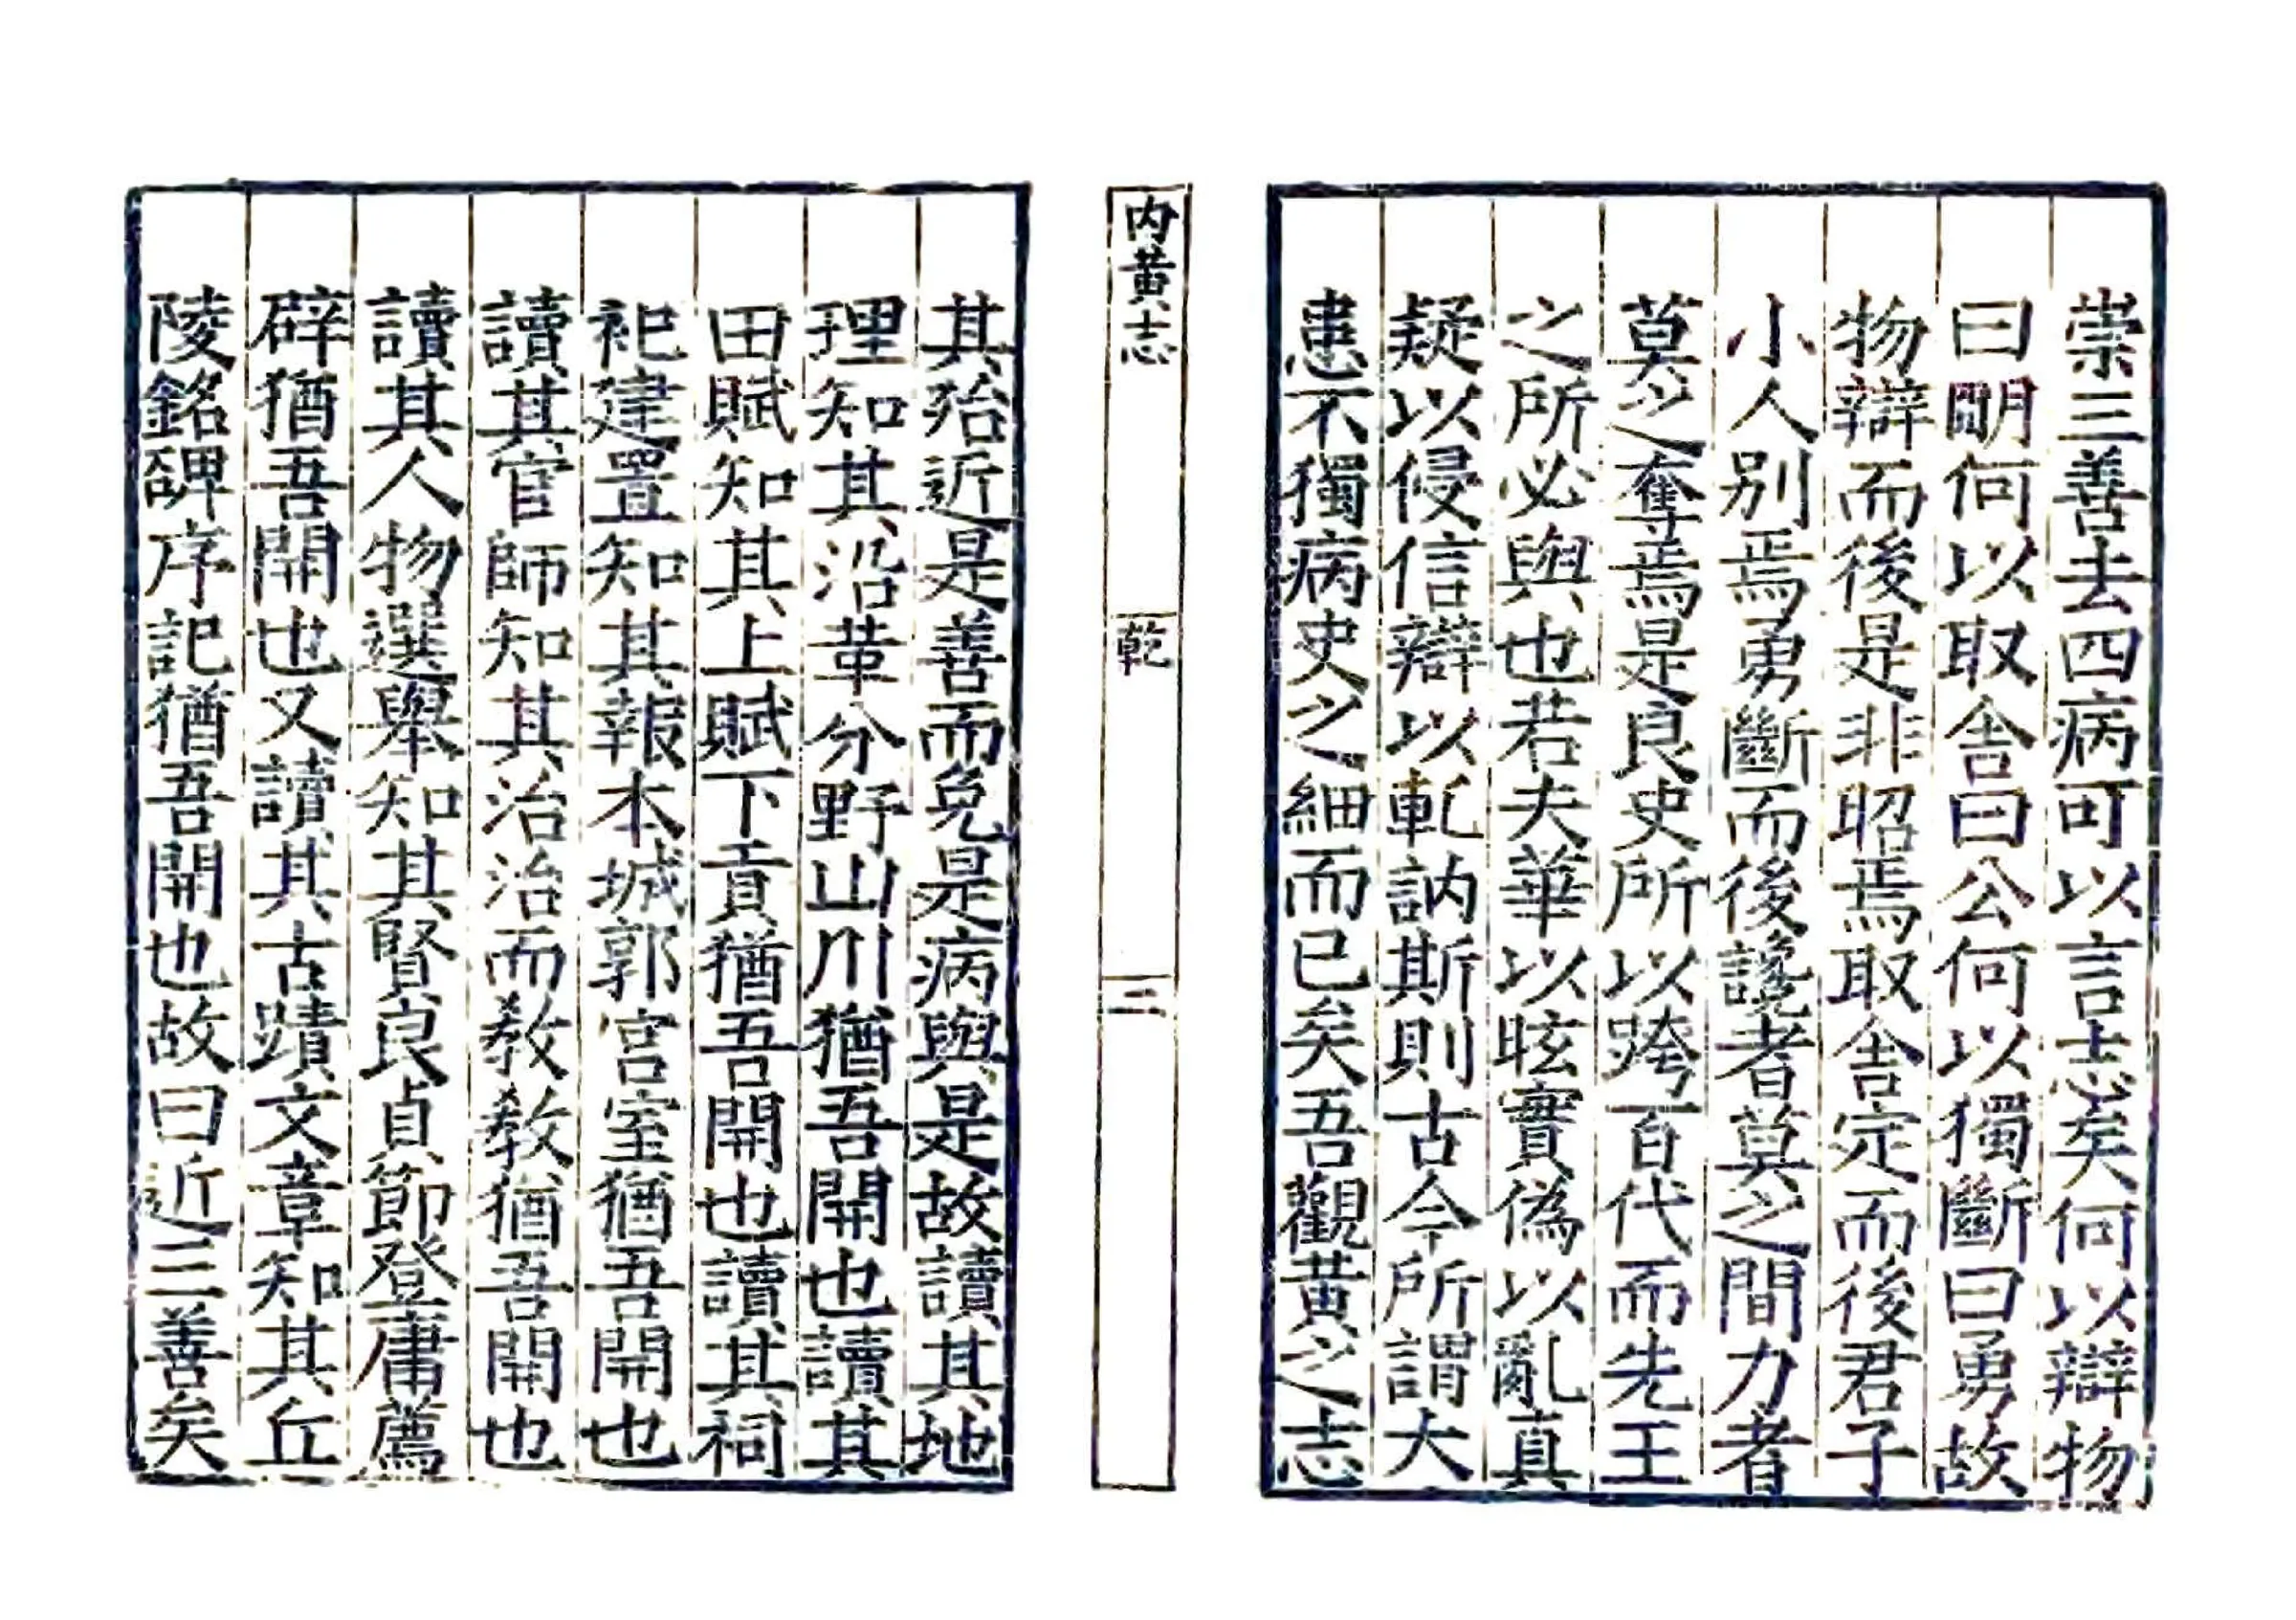 崇三善去四病可以言志矣何以辯物
曰明何以取舎曰公何以獨斷曰勇故
物辯而後是非昭焉取舎定而後君子
小人別焉勇斷而後讒者莫之間力者
莫之奪焉是良史所以跨百代而先王
之所必與也若夫華以眩實偽以亂真
疑以侵信辯以乾訥斯則古今所謂大
患不獨病史之細而已矣吾觀黃之志
內黃志
乾
三
其殆近是善而免是病與是故讀其地
理知其沿革分野山川猶吾開也讀其
田賦知其上賦下貢猶吾開也讀其祠
祀建置知其報本城郭宮室猶吾開也
讀其官師知其治治而教教猶吾開也
讀其人物選舉知其賢良貞節登庸薦
辟猶吾開也又讀其古蹟文章知其丘
陵銘碑序記猶吾開也故曰近三善矣